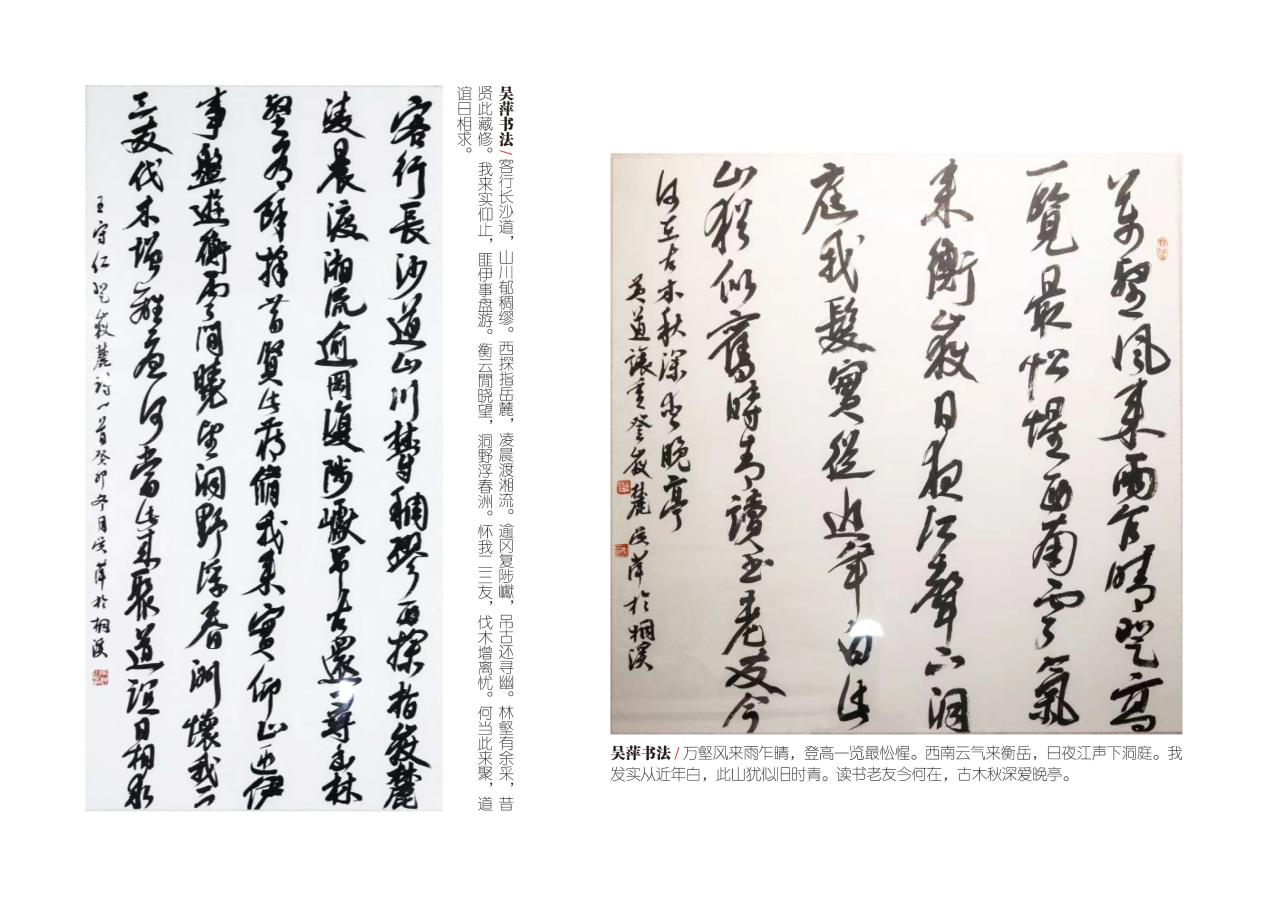 客行長沙道山川鬱稠繆西探指嶽麓
凌晨渡湘流逾岡復陟巘弔古還尋幽林
壑有餘採昔賢此藏脩我來實仰止匪伊
事盤遊衡雲閒曉望洞野浮春洲懷我二
三友伐木增離憂何當此來聚道誼日相求
王守仁登嶽麓詩一首癸卯冬月吳萍於桐溪
吴萍书法/客行长沙道，山川郁稠缪。西探指岳麓，凌晨渡湘流。逾冈复陟巘，吊古还寻幽。林壑有余采，昔
贤此藏修。我来实仰止，匪伊事盘游。衡云閒晓望，洞野浮春洲。怀我二三友，伐木增离忧。何当此来聚，道
谊日相求。
萬壑風來雨乍晴登高
一覽最忪惺西南雲氣
來衡嶽日夜江聲下洞
庭我髮實從近年白此
山猶似舊時青讀書老友今
何在古木秋深愛晚亭
黃道讓重登嶽麓吳萍於桐溪
吴萍书法/万壑风来雨乍晴，登高一览最忪惺。西南云气来衡岳，日夜江声下洞庭。我
发实从近年白，此山犹似旧时青。读书老友今何在，古木秋深爱晚亭。